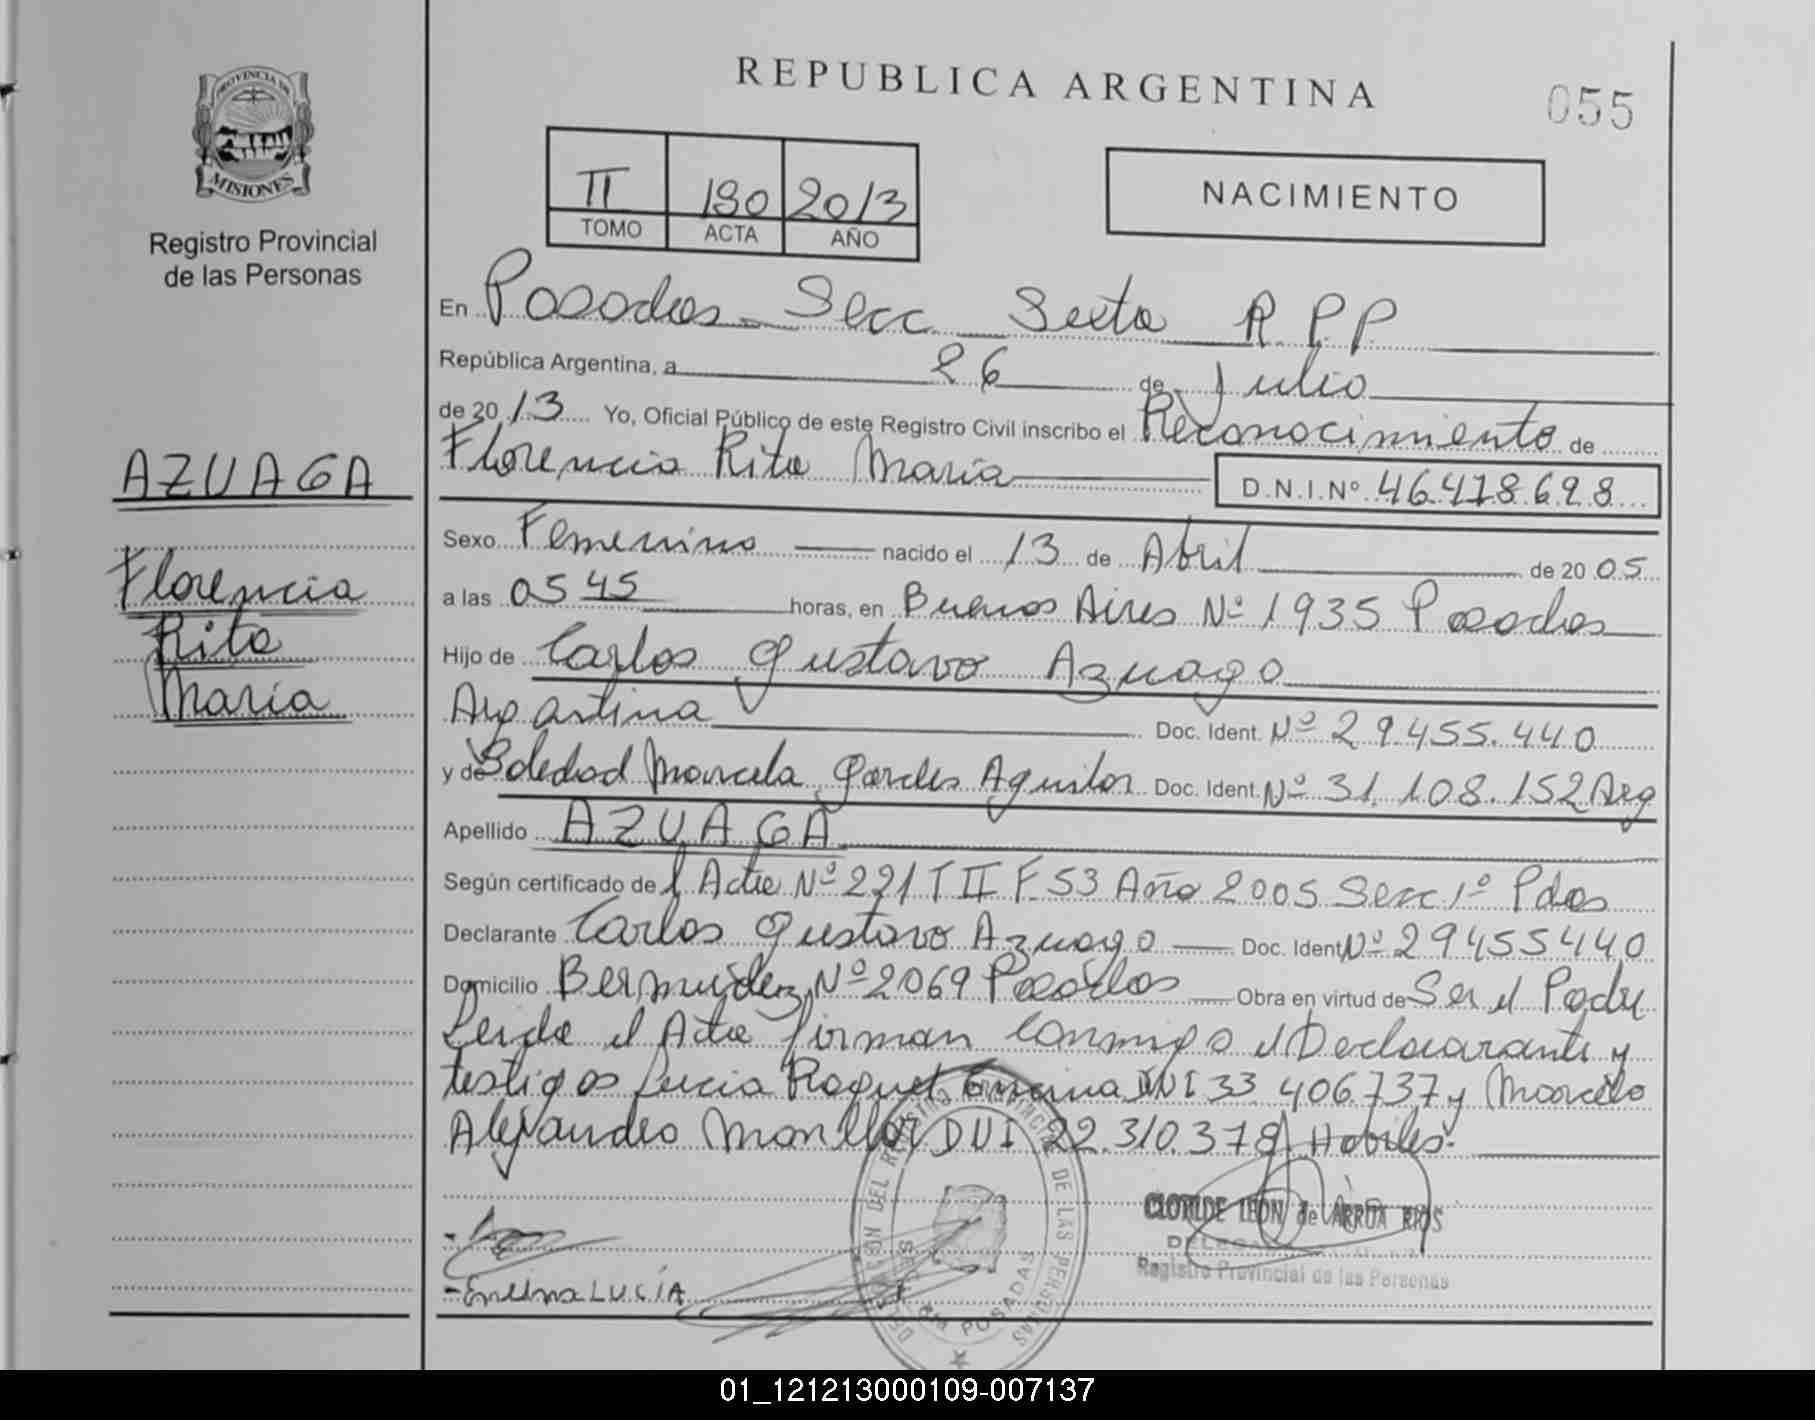 REPUBLICA ARGENTINA
055
PROVINCIA DE MISIONES
Registro Provincial
de las Personas
II 190 2013
TOMO ACTA AÑO
NACIMIENTO
En Posadas Secc Sexta R P P
República Argentina, a 26 de Julio
de 20 13 Yo, Oficial Público de este Registro Civil inscribo el Reconocimiento de
Florencia Rita Maria D.N.I.Nº 46.478.698
AZUAGA
Florencia
Rita
Maria
Sexo Femenino nacido el 13 de Abril de 20 05
a las 05 45 horas, en Buenos Aires Nº 1935 Posadas
Hijo de Carlos Gustavo Azuaga
Argentina Doc. Ident. Nº 29.455.440
y de Soledad Marcela Aguilar Doc. Ident. Nº 31.108.152 Arg
Apellido AZUAGA
Según certificado de Acta Nº 221 T II F 53 Año 2005 Secc 1º Pdas
Declarante Carlos Gustavo Azuaga Doc. Ident Nº 29455440
Domicilio Bermudez Nº 2069 Posadas Obra en virtud de Ser el Padre
Leida el Acta firman conmigo el Declarante y
testigos Lucia Raquel Encina DNI 33 406.737 y Marcelo
Alejandro DNI 22.310.378 Habiles.
CLOTILDE LEON de ARRUA RIOS
DELEGADA
Registro Provincial de las Personas
Encina LUCÍA
DELEGACIÓN DEL REGISTRO PROVINCIAL DE LAS PERSONAS
POSADAS
01_121213000109-007137